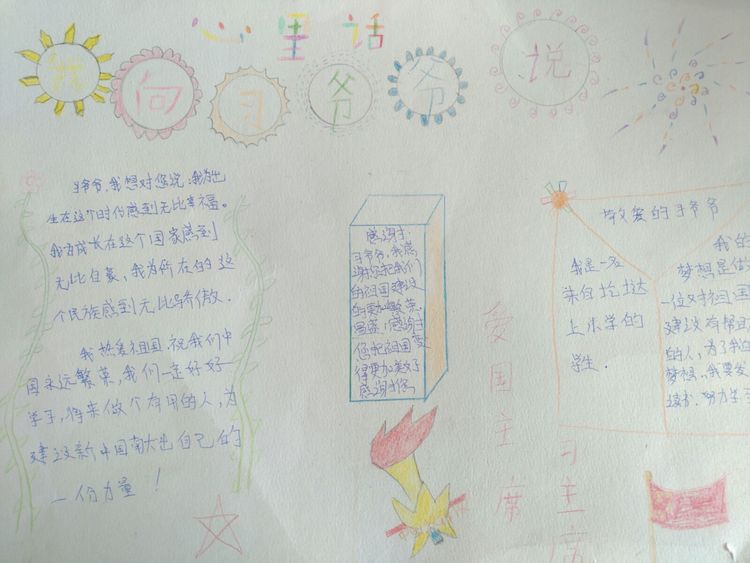 心里话
我向习爷爷说
习爷爷，我想对您说：我为出
生在这个时代感到无比幸福。
我为成长在这个国家感到
无比自豪，我为所在的这
个民族感到无比骄傲．
我热爱祖国，祝我们中
国永远繁荣，我们一定好好
学习，将来做个有用的人，为
建设新中国献出自己的
一份力量！
感谢习
习爷爷，我感
谢您把我们
的祖国建设
的更加繁荣
昌盛，感谢
您把祖国变
得更加美好了
感谢您
爱国主席
习主席
敬爱的习爷爷
我是一名
来自
上小学的
学生．
我的
梦想是做
一位对祖国
建设有帮
的人，为了我
梦想，我要发
读书．努力学